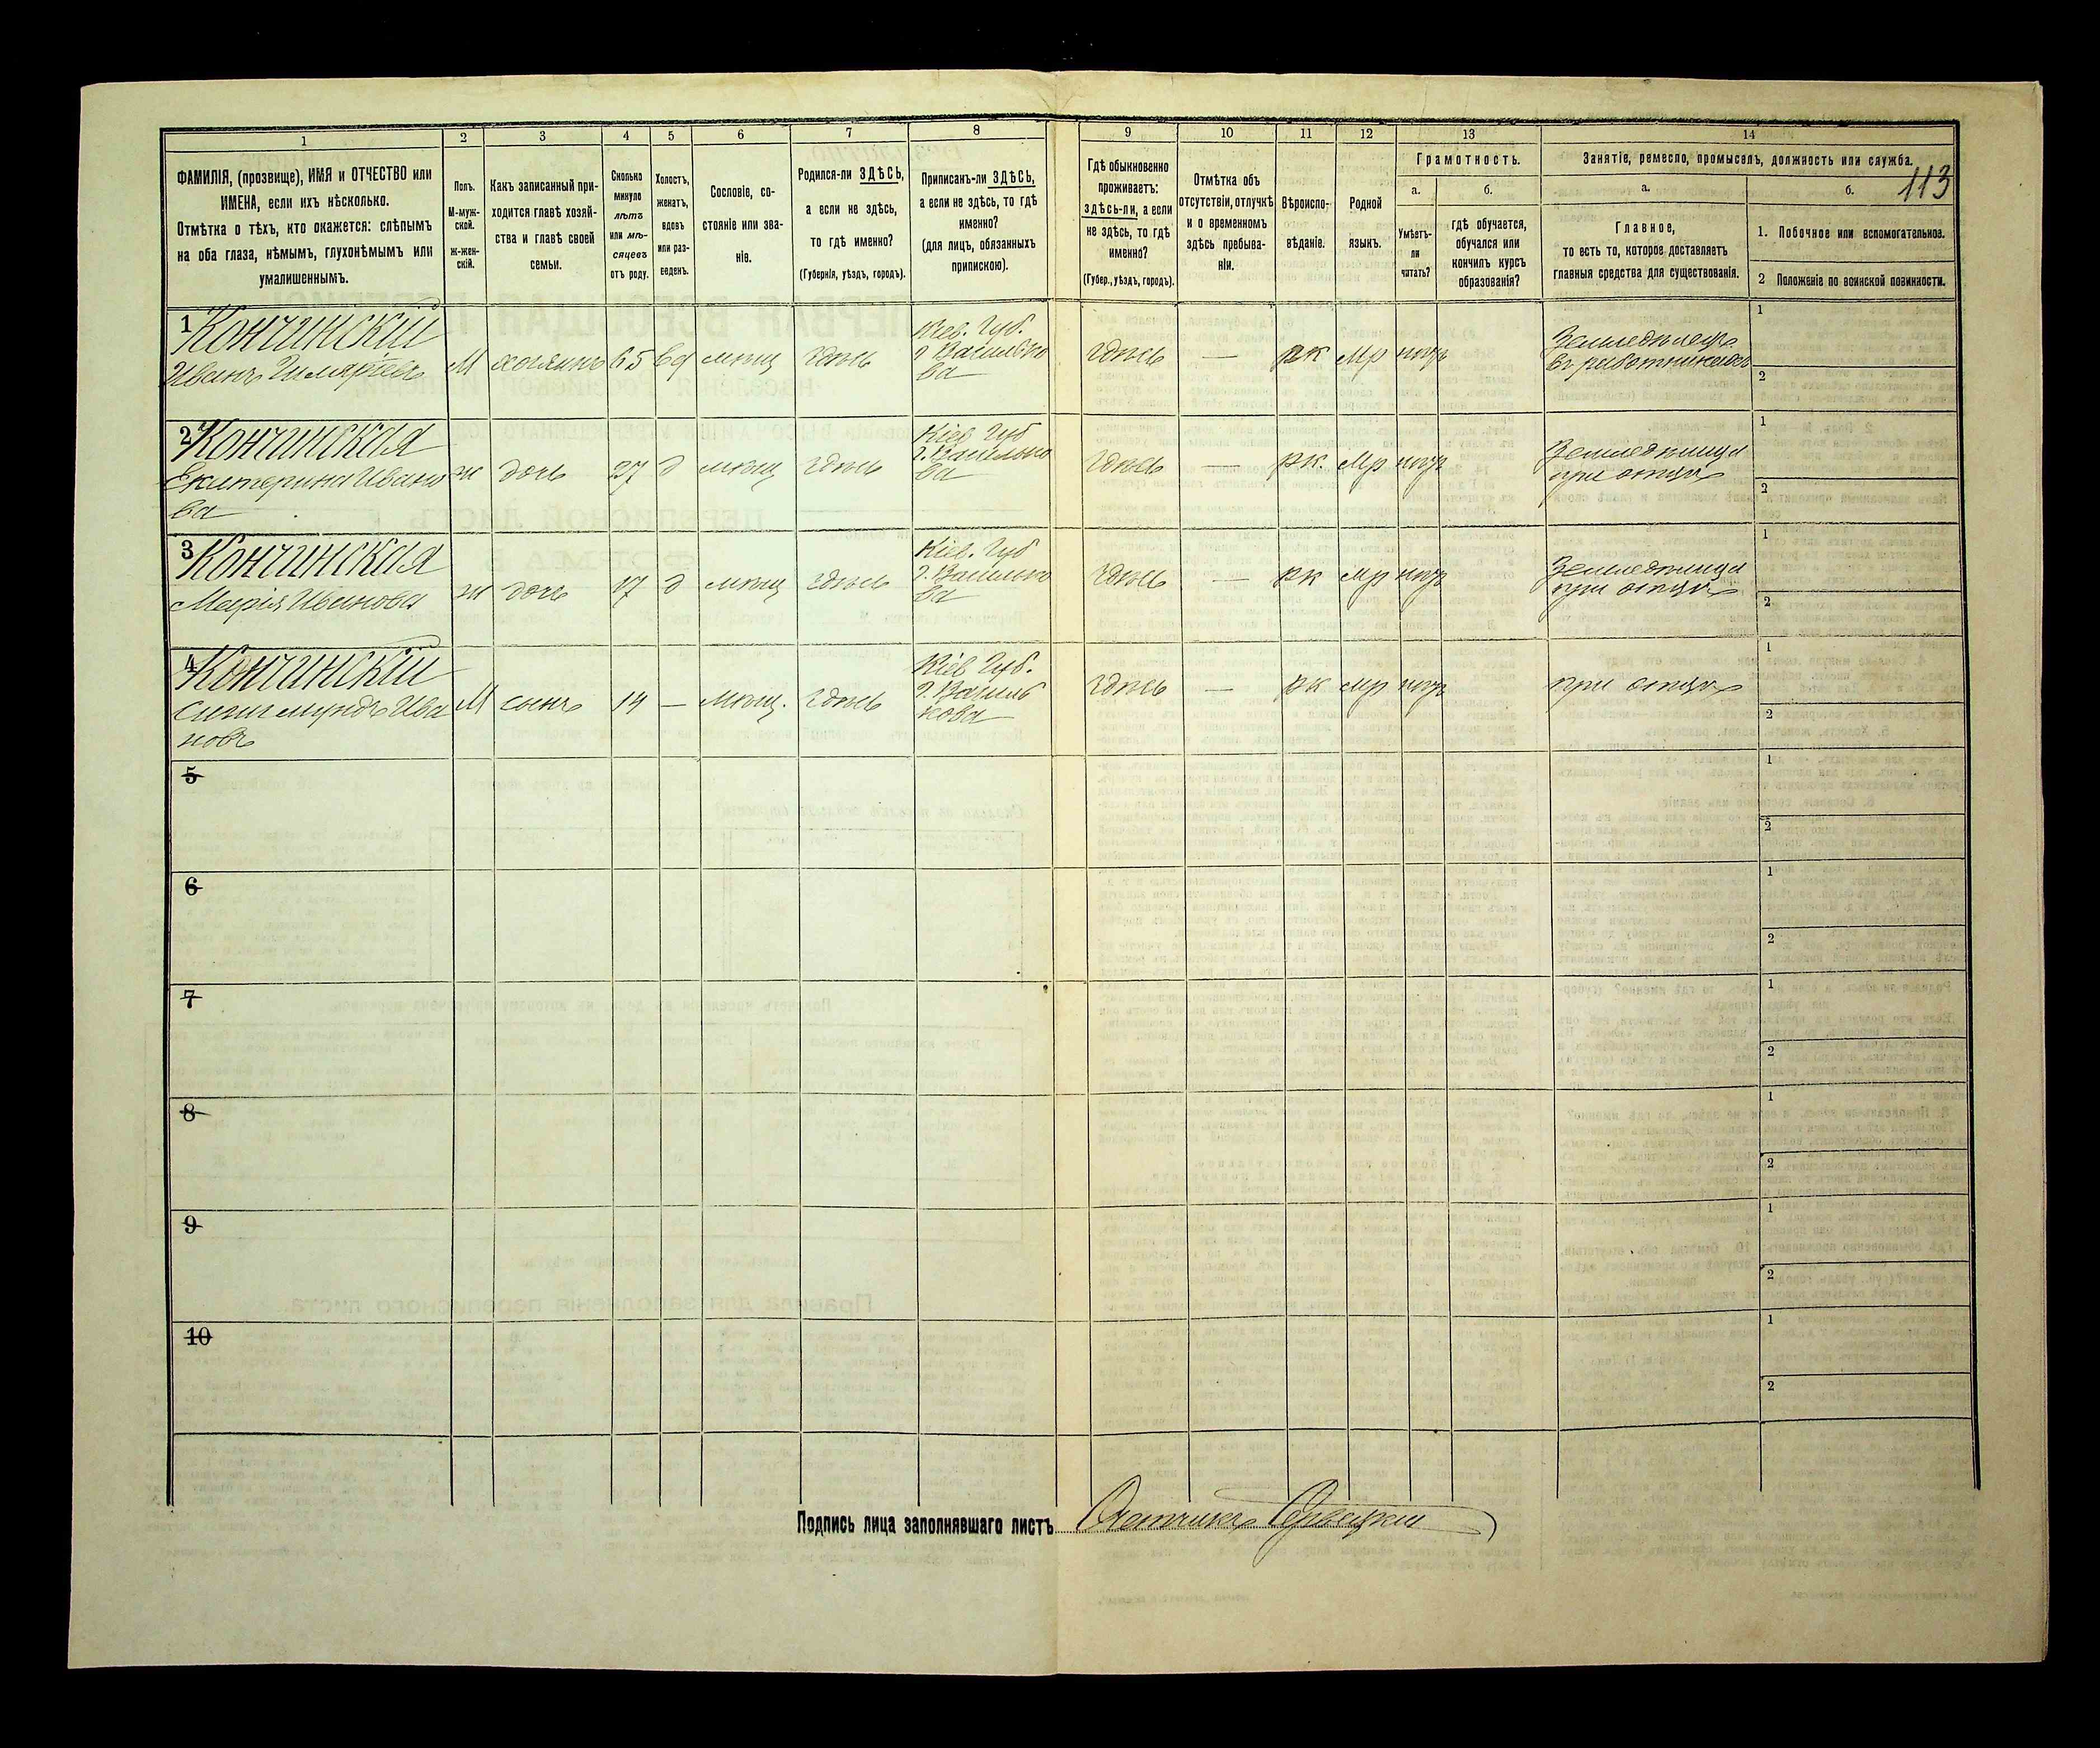 1 2 3 4 5 6 7 8 9 10 11 12 13 14
ФАМИЛІЯ, (прозвище), ИМЯ и ОТЧЕСТВО или
ИМЕНА, если ихъ нѣсколько.
Отмѣтка о тѣхъ, кто окажется: слѣпымъ
на оба глаза, нѣмымъ, глухонѣмымъ или
умалишеннымъ.
Полъ.
М-муж-
ской.
ж-жен-
скій.
Какъ записанный при-
ходится главѣ хозяй-
ства и главѣ своей
семьи.
Сколько
минуло
лѣтъ
или мѣ-
сяцевъ
отъ роду.
Холостъ,
женатъ,
вдовъ
или раз-
веденъ.
Сословіе, со-
стояніе или зва-
ніе.
Родился-ли ЗДѢСЬ,
а если не здѣсь,
то гдѣ именно?
(Губернія, уѣздъ, городъ).
Приписанъ-ли ЗДѢСЬ,
а если не здѣсь, то гдѣ
именно?
(для лицъ, обязанныхъ
припискою).
Гдѣ обыкновенно
проживаетъ:
здѣсь-ли, а если
не здѣсь, то гдѣ
именно?
(Губер., уѣздъ, городъ).
Отмѣтка объ
отсутствіи, отлучкѣ
и о временномъ
здѣсь пребыва-
ніи.
Вѣроиспо-
вѣданіе.
Родной
языкъ.
Грамотность.
а.
Умѣетъ-
ли
читать?
б.
гдѣ обучается,
обучался или
кончилъ курсъ
образованія?
Занятіе, ремесло, промыселъ, должность или служба.
113
а.
Главное,
то есть то, которое доставляетъ
главныя средства для существованія.
б.
1. Побочное или вспомогательное.
2 Положеніе по воинской повинности.
1 Кончинскій
Иванъ
М хозяинъ 65 вд мѣщ здѣсь
Кіев. Губ.
г. Василько
ва
здѣсь — рк мр нтр
Земледѣлецъ
въ работникахъ
1
2
2 Кончинская
Екатерина Ивано
ва
ж дочь 27 д мѣщ здѣсь
Кіев Губ
г. Василько
ва
здѣсь — рк. мр нтр
Земледѣлица
при отцѣ
1
2
3 Кончинская
Марія Иванова
ж дочь 17 д мѣщ здѣсь
Кіев. Губ
г. Василько
ва
здѣсь — рк мр нтр
Земледѣлица
при отцѣ
1
2
4 Кончинскій
Сигизмундъ Ива
новъ
М сынъ 14 — мѣщ. здѣсь
Кіев Губ.
г. Василь
кова
здѣсь — рк мр нтр
при отцѣ
1
2
5
1
2
6
1
2
7
1
2
8
1
2
9
1
2
10
1
2
Подпись лица заполнявшаго листъ Счетчикъ